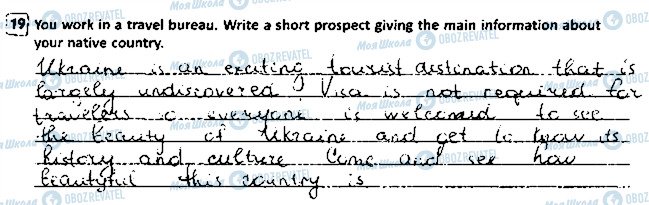 19 You work in a travel bureau. Write a short prospect giving the main information about
your native country.
Ukraine is an exciting tourist destination that is
largely undiscovered! Visa is not required for
travelers so everyone is welcomed to see
the beauty of Ukraine and get to know its
history and culture Come and see how
beautyful this country is
Моя Школа OBOZREVATEL